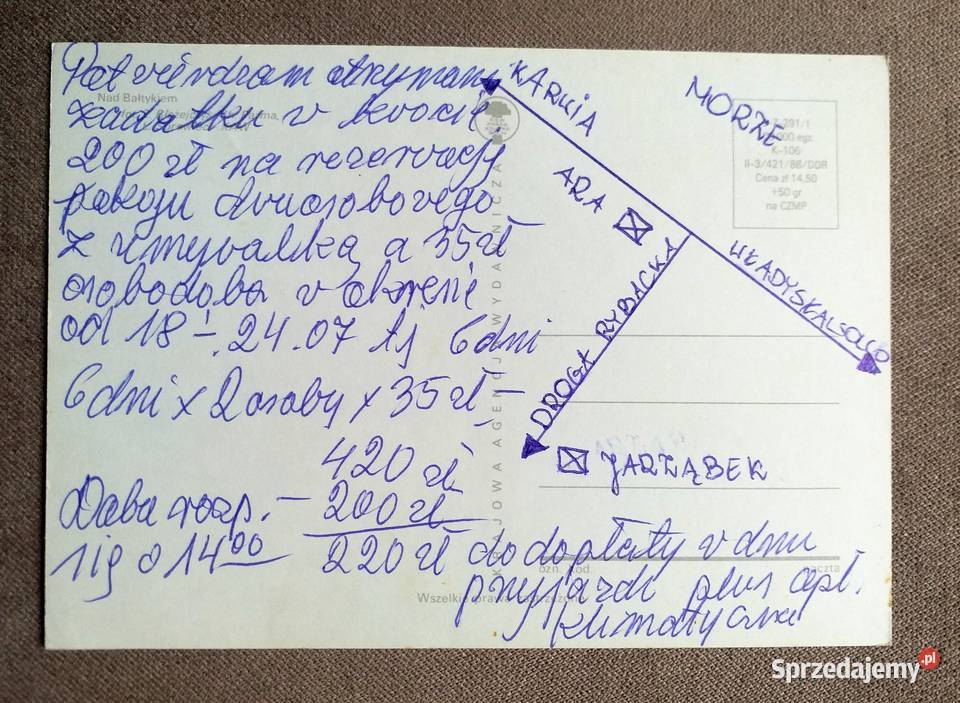 Potwierdzam otrzymanie
Nad Bałtykiem
zadatku w kwocie
200 zł na rezerwację
pokoju dwuosobowego
z umywalką a 35 zł
osobodoba w okresie
od 18 - 24.07 tj 6 dni
6 dni x 2 osoby x 35 zł -
420 zł
Doba rozp. - 200 zł
się o 14 00 220 zł do dopłaty w dniu
przyjazdu plus opł.
klimatyczna
KARWIA
MORZE
ARA
WŁADYSŁAWOWO
DROGA RYBACKA
JARZĄBEK
Z-291/1
000 egz.
K-106
II-3/421/86/DDR
Cena zł 14,50
+50 gr
na CZMP
KRAJOWA AGENCJA WYDAWNICZA
ozn. kod.
poczta
Wszelkie prawa zastrzeżone
Sprzedajemy.pl